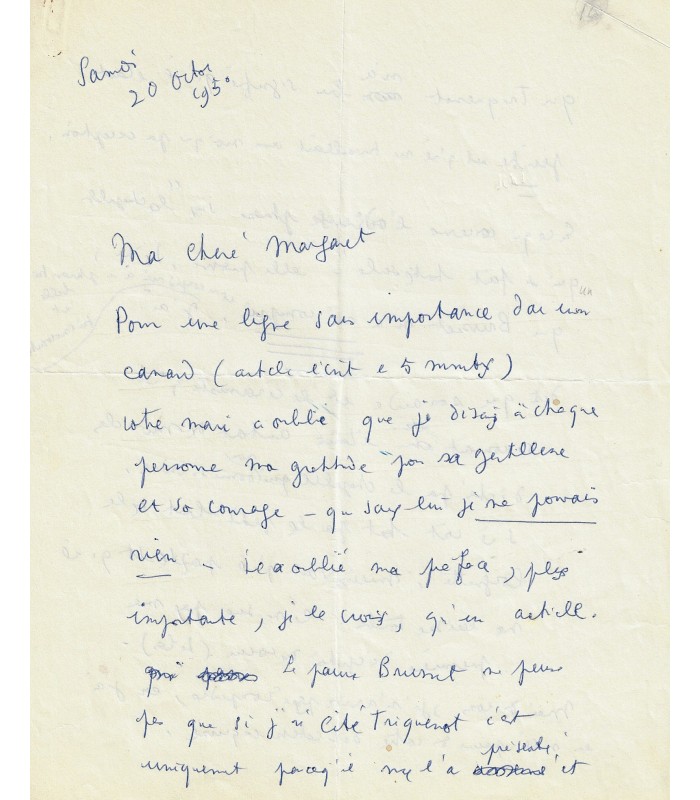 Samedi
20 Octobre
1950
Ma chère Margaret
Pour une ligne sans importance dans un
canard (article écrit en 5 minutes)
votre mari a oublié que je disais à chaque
personne ma gratitude pour sa gentillesse
et son courage – que sans lui je ne pouvais
rien – Il a oublié ma préface, plus
importante, je le crois, qu'un article.
Le pauvre Brunet ne pense
pas que si j'ai cité Triquenot c'est
uniquement parce qu'il me l'a présenté et